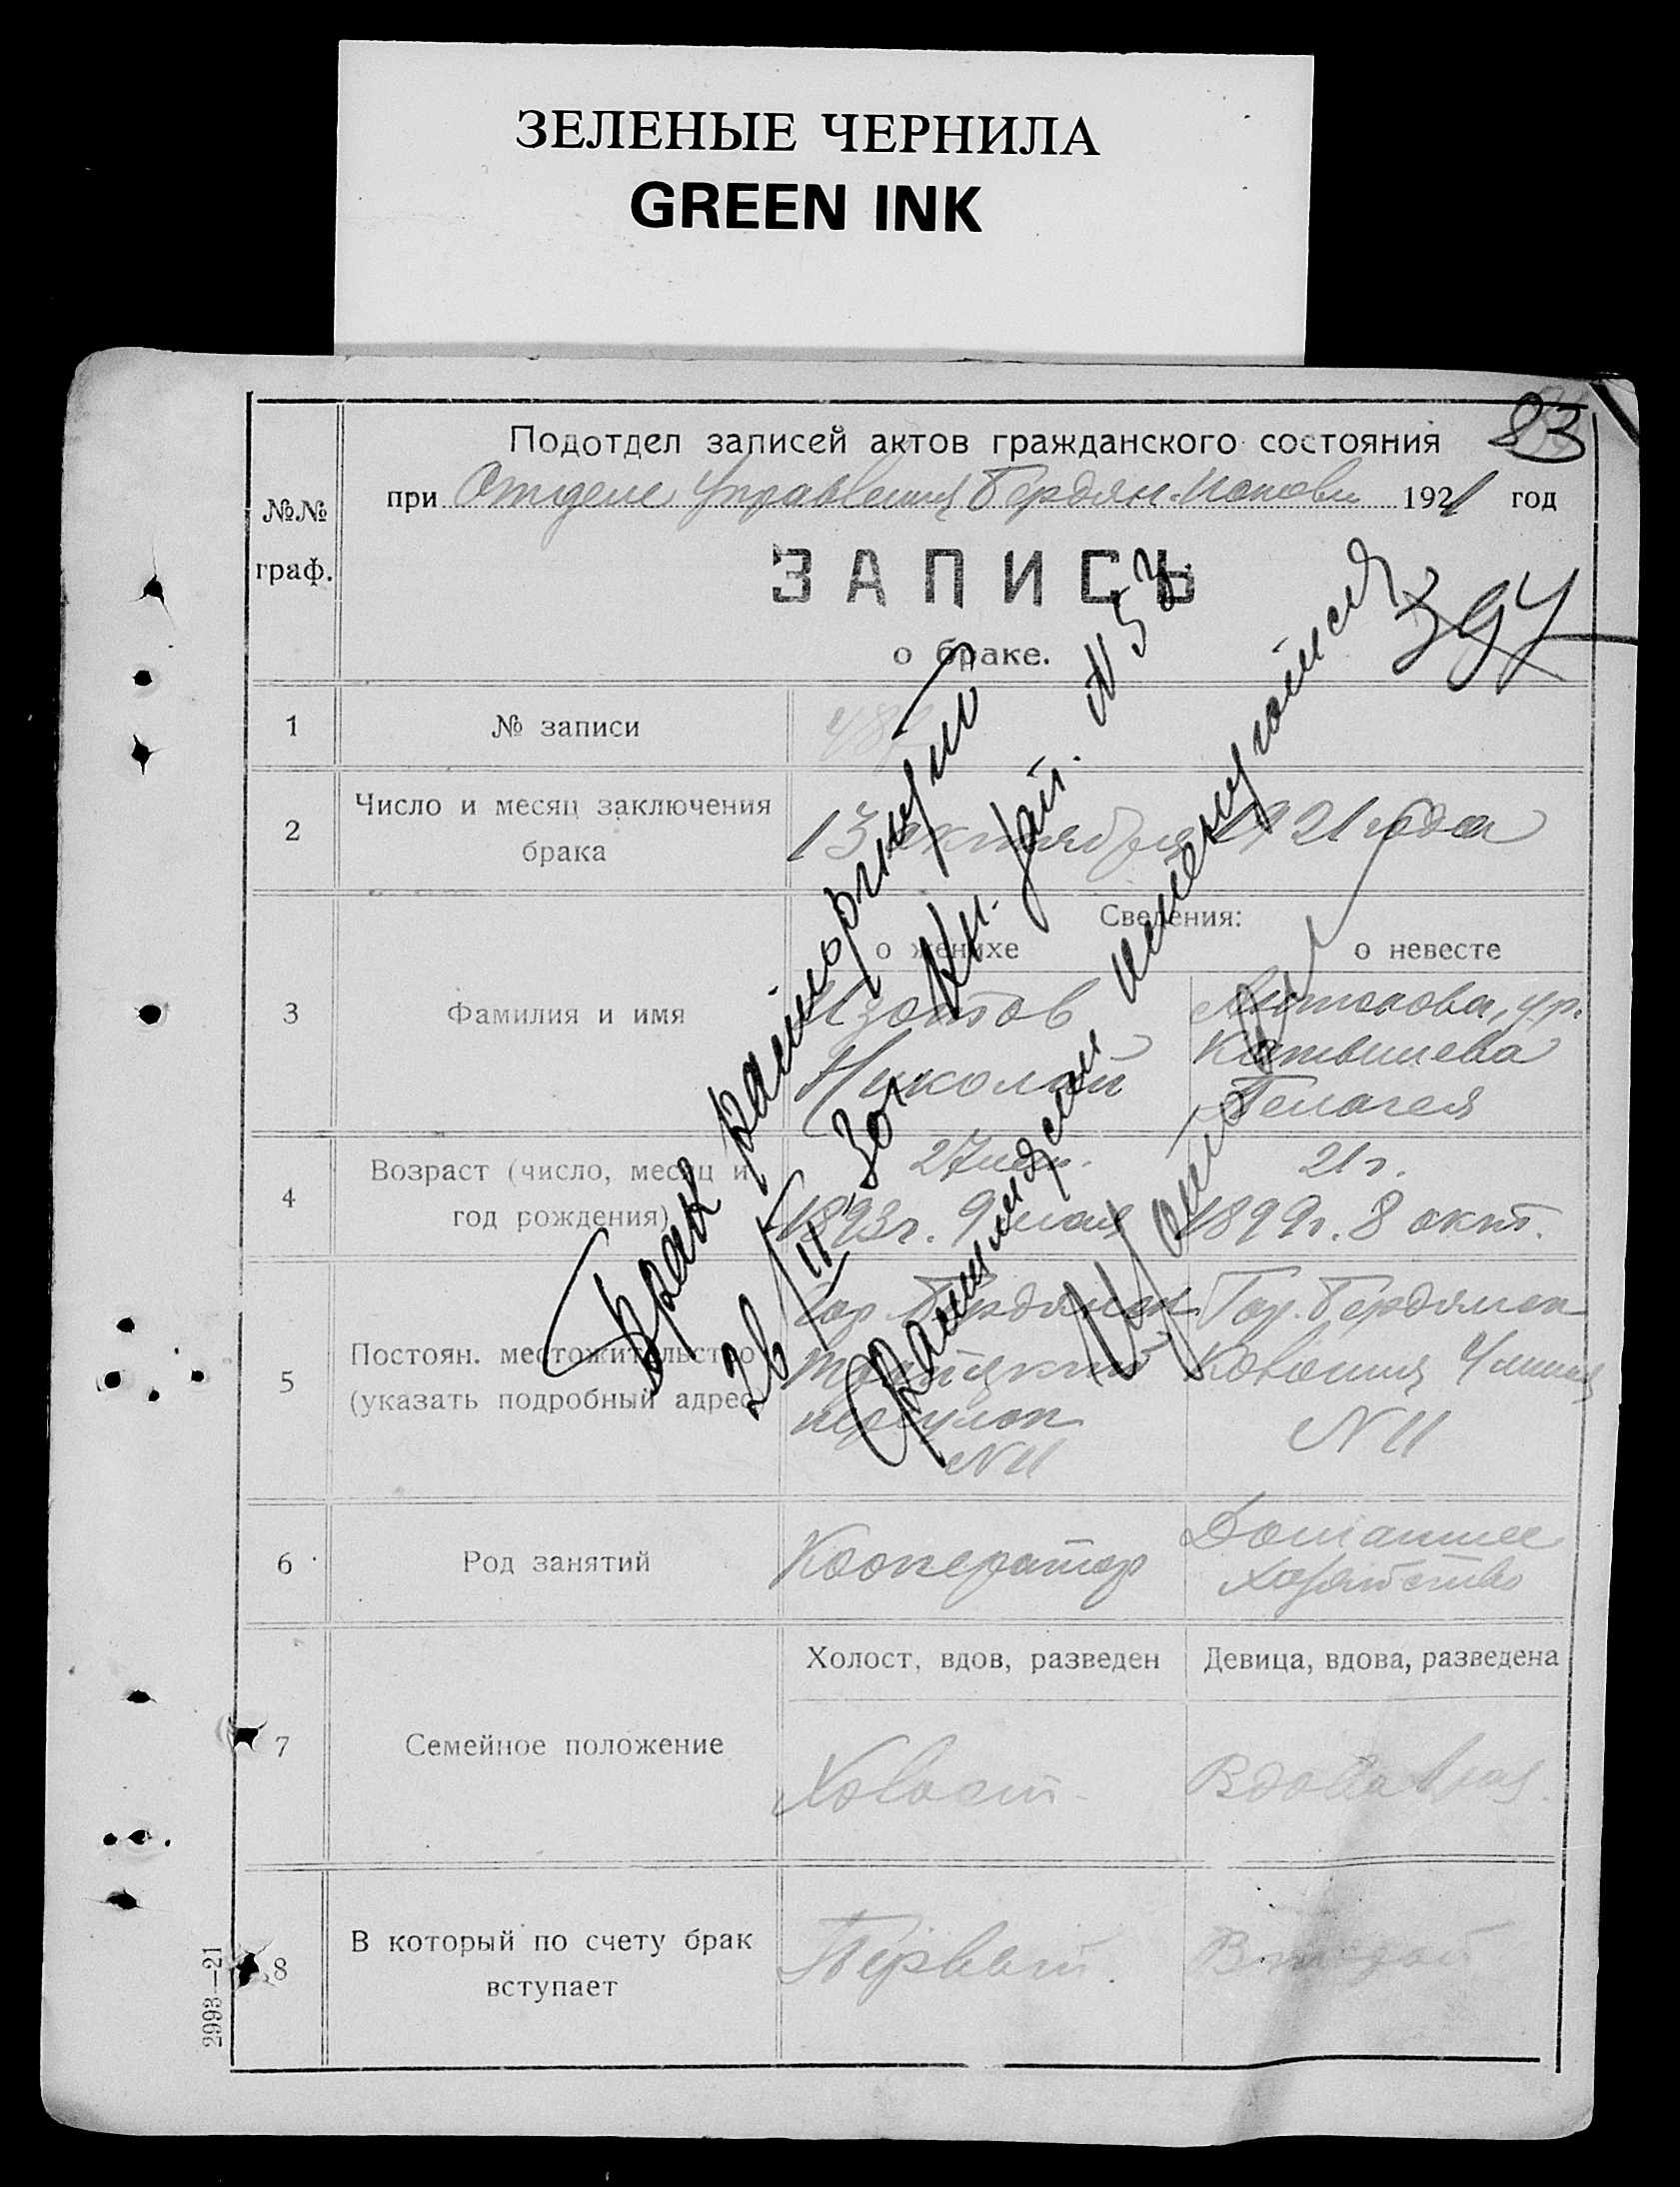 ЗЕЛЕНЫЕ ЧЕРНИЛА
GREEN INK
83
Подотдел записей актов гражданского состояния
при Отделе Управления Бердян. 1921 год
№№ граф.
ЗАПИСЬ
о браке.
394
1 № записи
2 Число и месяц заключения брака
13 октября 1921 года
Сведения:
о женихе о невесте
3 Фамилия и имя
Изотов
Николай
Антонова, ур.
Пелагея
4 Возраст (число, месяц и год рождения)
27 лет.
1893г. 9 мая
21 г.
1899г. 8 окт.
5 Постоян. местожительство (указать подробный адрес)
Гор. Бердянск
Троицкий
переулок
N 11
Гор. Бердянск
Колония 4 линия
N 11
6 Род занятий
Кооператор
Домашнее
хозяйство
7 Семейное положение
Холост, вдов, разведен Девица, вдова, разведена
Холост.
8 В который по счету брак вступает
Первый.
Второй
Брак расторгнут
26/II 30г. Кн. N 53
2993—21